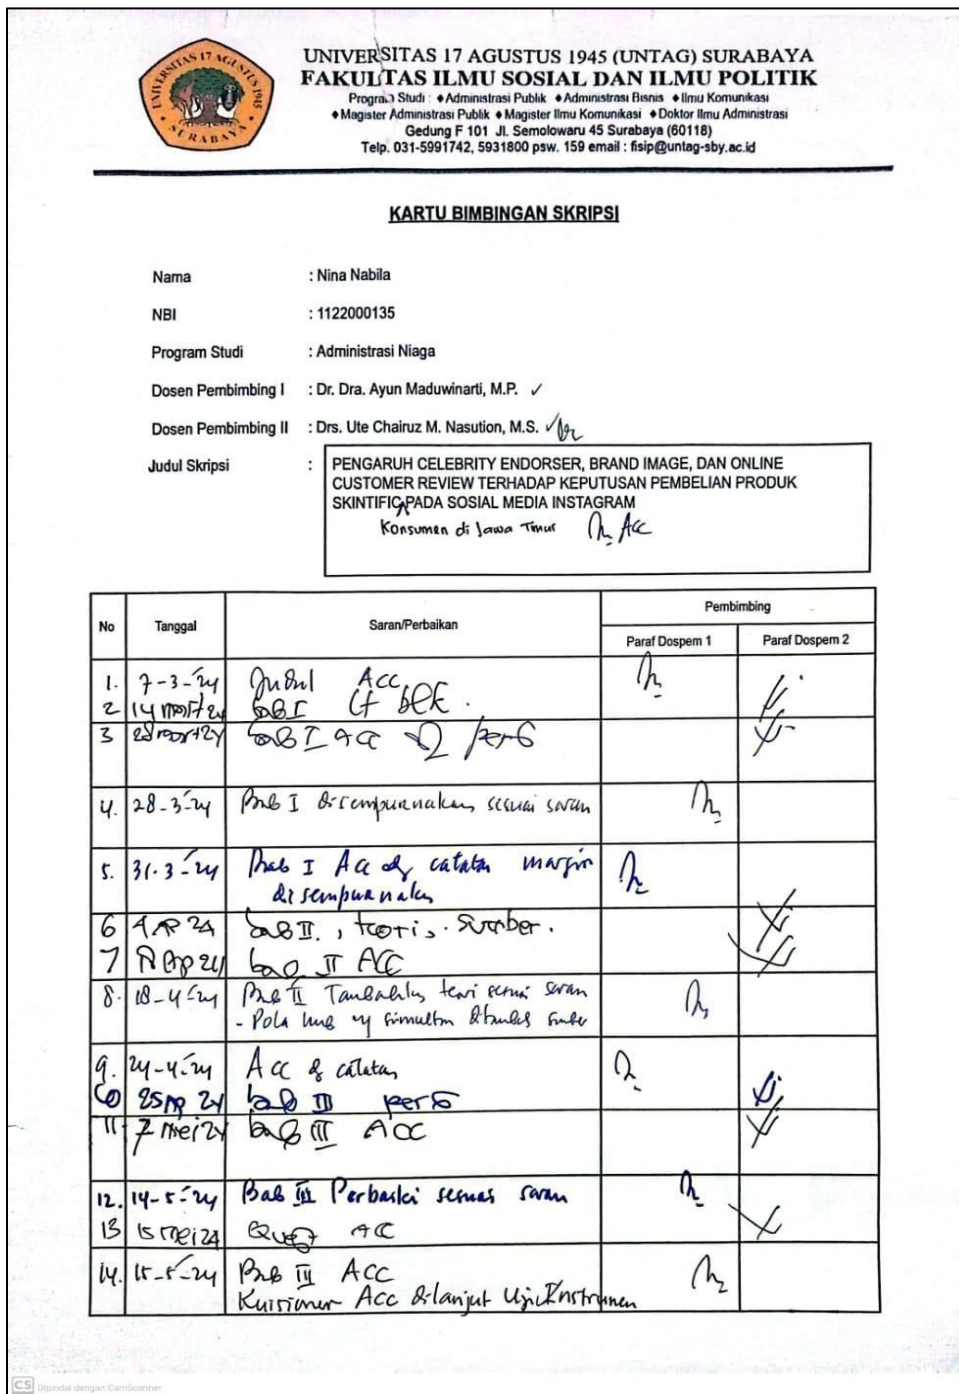 UNIVERSITAS 17 AGUSTUS 1945
SURABAYA
UNIVERSITAS 17 AGUSTUS 1945 (UNTAG) SURABAYA
FAKULTAS ILMU SOSIAL DAN ILMU POLITIK
Program Studi : ♦Administrasi Publik ♦Administrasi Bisnis ♦Ilmu Komunikasi
♦Magister Administrasi Publik ♦Magister Ilmu Komunikasi ♦Doktor Ilmu Administrasi
Gedung F 101 Jl. Semolowaru 45 Surabaya (60118)
Telp. 031-5991742, 5931800 psw. 159 email : fisip@untag-sby.ac.id
KARTU BIMBINGAN SKRIPSI
Nama : Nina Nabila
NBI : 1122000135
Program Studi : Administrasi Niaga
Dosen Pembimbing I : Dr. Dra. Ayun Maduwinarti, M.P. ✓
Dosen Pembimbing II : Drs. Ute Chairuz M. Nasution, M.S. ✓
Judul Skripsi : PENGARUH CELEBRITY ENDORSER, BRAND IMAGE, DAN ONLINE
CUSTOMER REVIEW TERHADAP KEPUTUSAN PEMBELIAN PRODUK
SKINTIFIC PADA SOSIAL MEDIA INSTAGRAM
Konsumen di Jawa Timur Acc
No Tanggal Saran/Perbaikan Pembimbing
Paraf Dospem 1 Paraf Dospem 2
1. 7-3-'24 Judul ACC
2 14 24 bab I
3 28 24 bab I ACC
4. 28-3-'24 Bab I disempurnakan sesuai saran
5. 31-3-'24 Bab I Acc catatan margin
disempurnakan
6 4 AP 24 bab II, teori, sumber.
7 24 bab II ACC
8. 18-4-'24 Bab II Tambahkan teori sesuai saran
- Pola simultan
9. 24-4-'24 Acc catatan
10 25 Ap 24 bab III
11 7 mei 24 bab III ACC
12. 14-5-'24 Bab III Perbaiki sesuai saran
13 15 mei 24 Quest ACC
14. 15-5-'24 Bab III ACC
Kuisioner Acc dilanjut Uji Instrumen
CS Dipindai dengan CamScanner